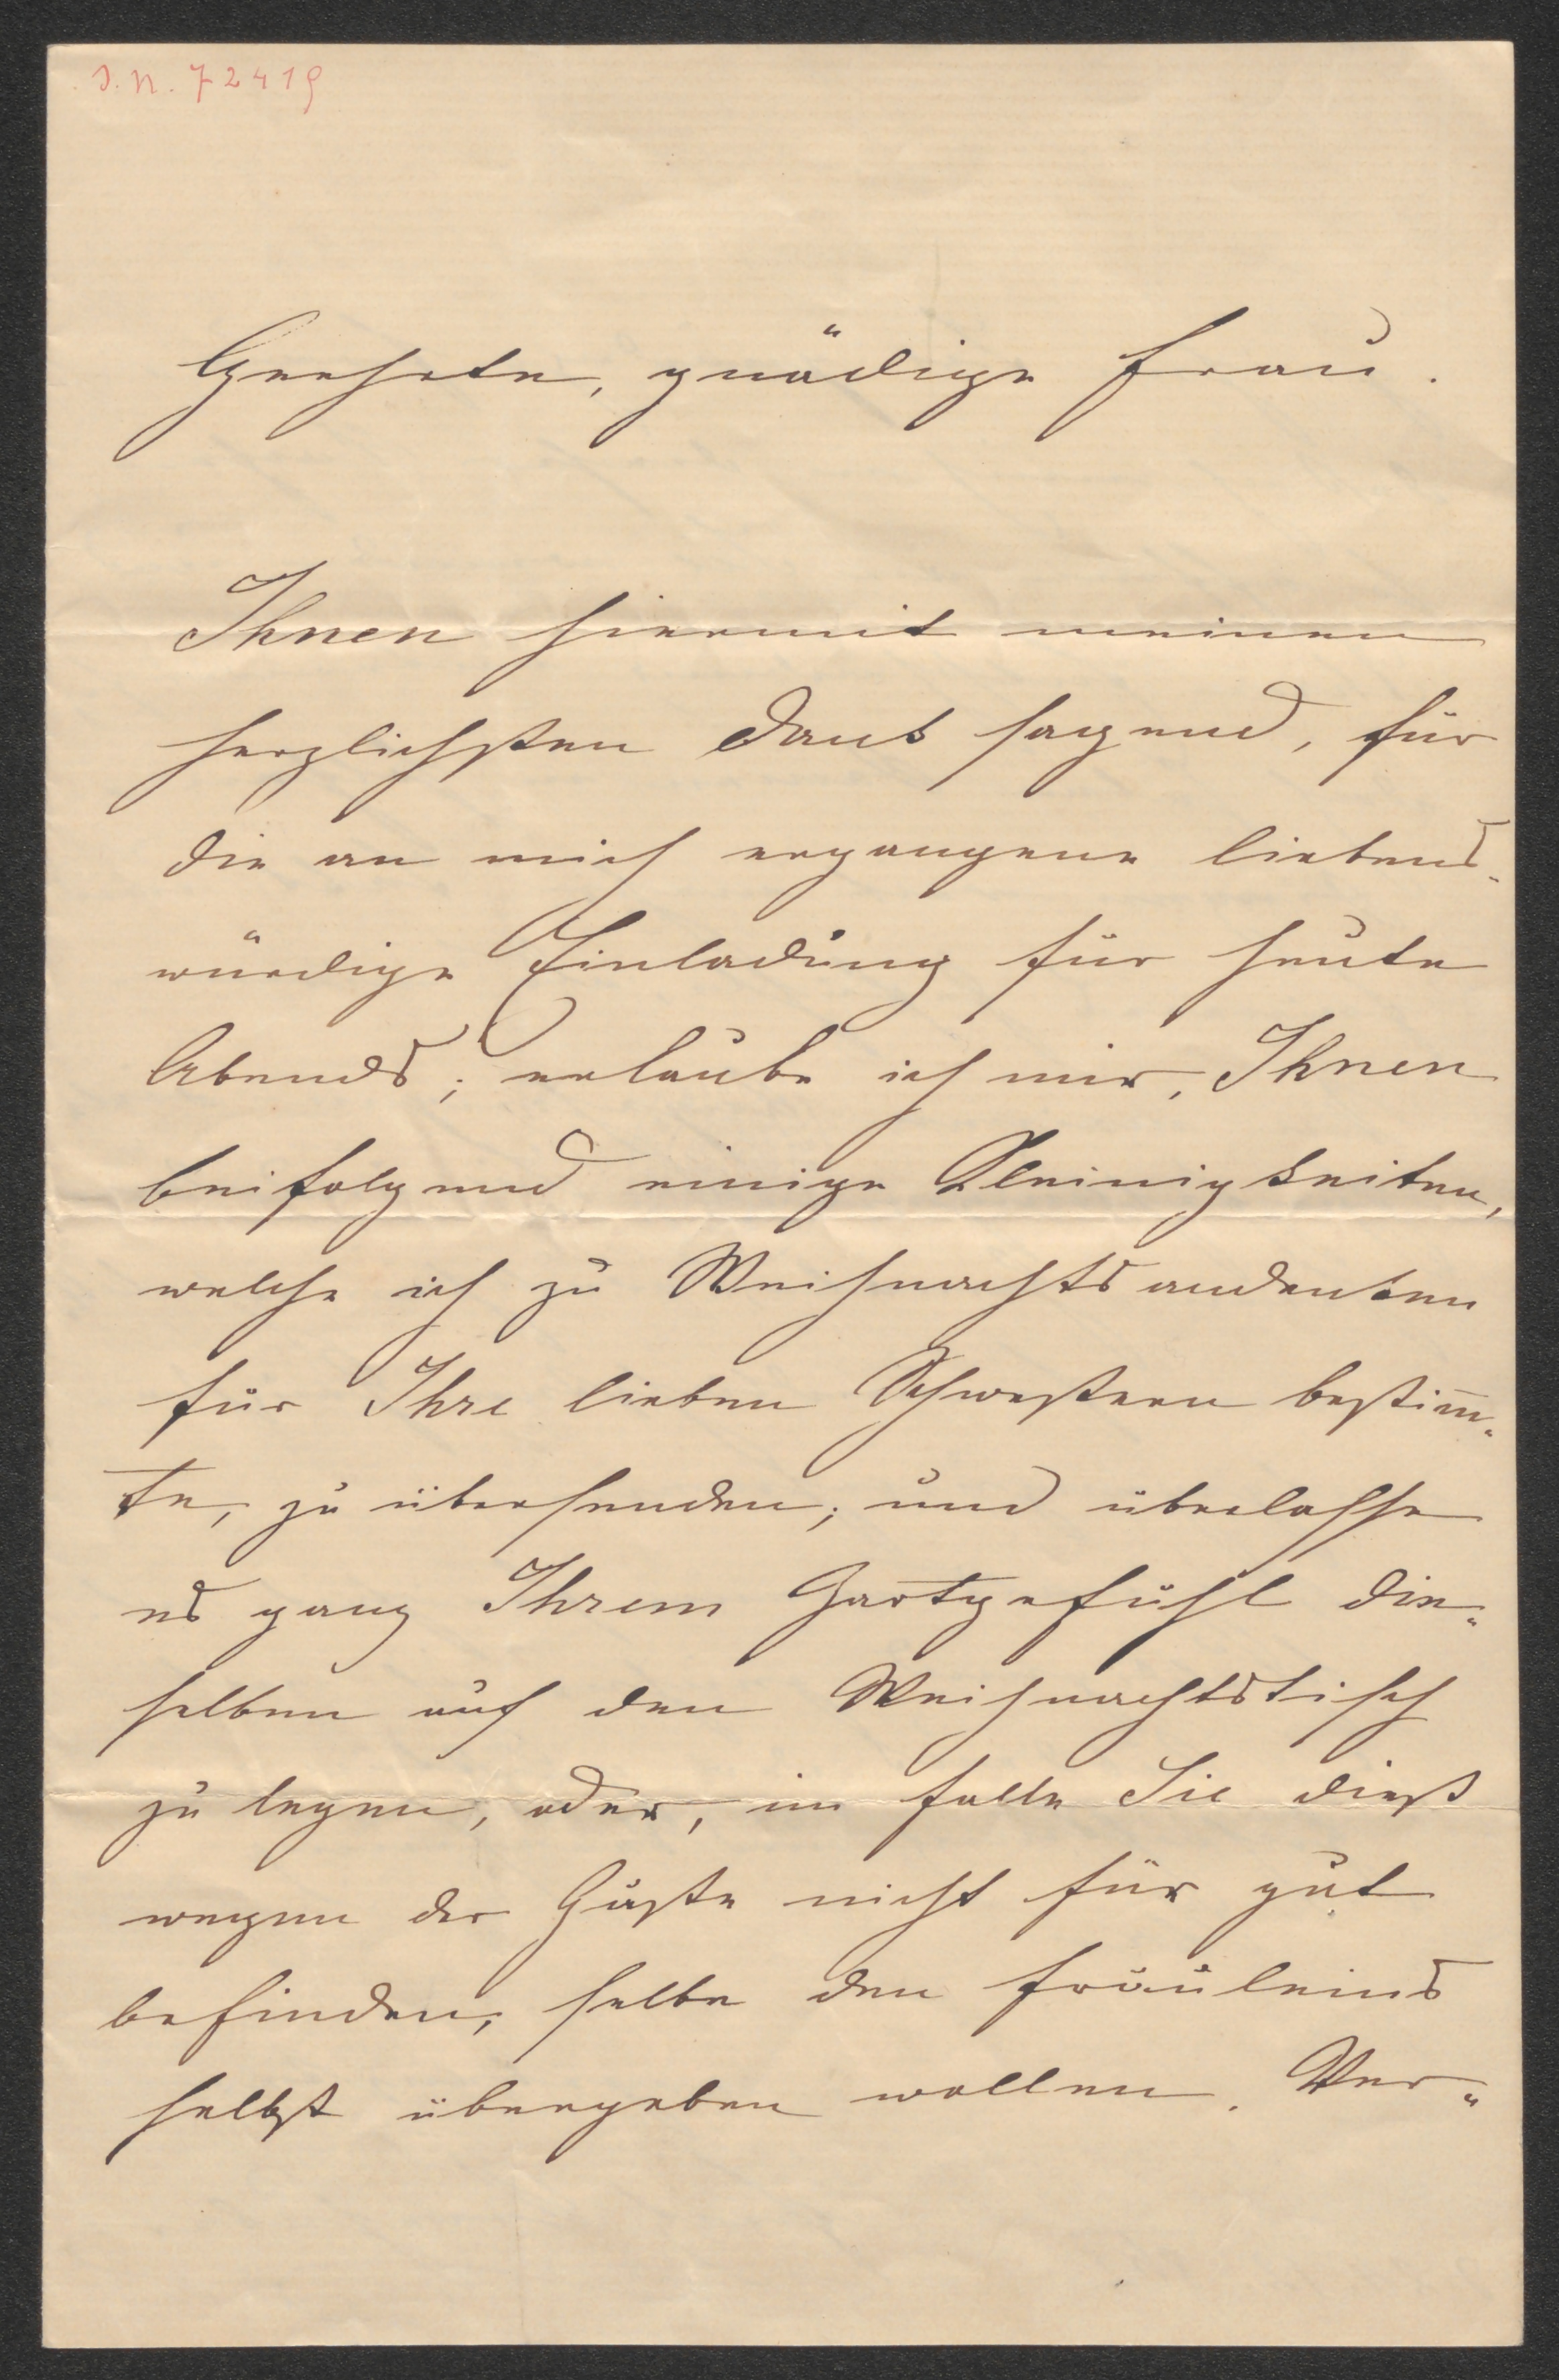 I. N. 72419
Geehrte, gnädige Frau.
Ihnen hiermit meinen
herzlichsten Dank sagend, für
die an mich ergangene liebens-
würdige Einladung für heute
Abends; erlaube ich mir, Ihnen
beifolgend einige Kleinigkeiten,
welche ich zu Weihnachtsandenken
für Ihre lieben Schwestern bestim̅-
te, zu übersenden; und überlasse
es ganz Ihrem Zartgefühl die-
selben auf den Weihnachtstisch
zu legen, oder, im Falle Sie dieß
wegen der Gäste nicht für gut
befinden, selbe den Fräuleins
selbst übergeben wollen. Ver-